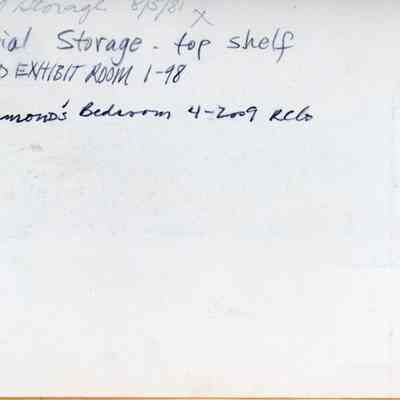 Storage 8/5/81 x
ial Storage - top shelf
D EXHIBIT ROOM 1-98
mond's Bedroom 4-2009 RCB